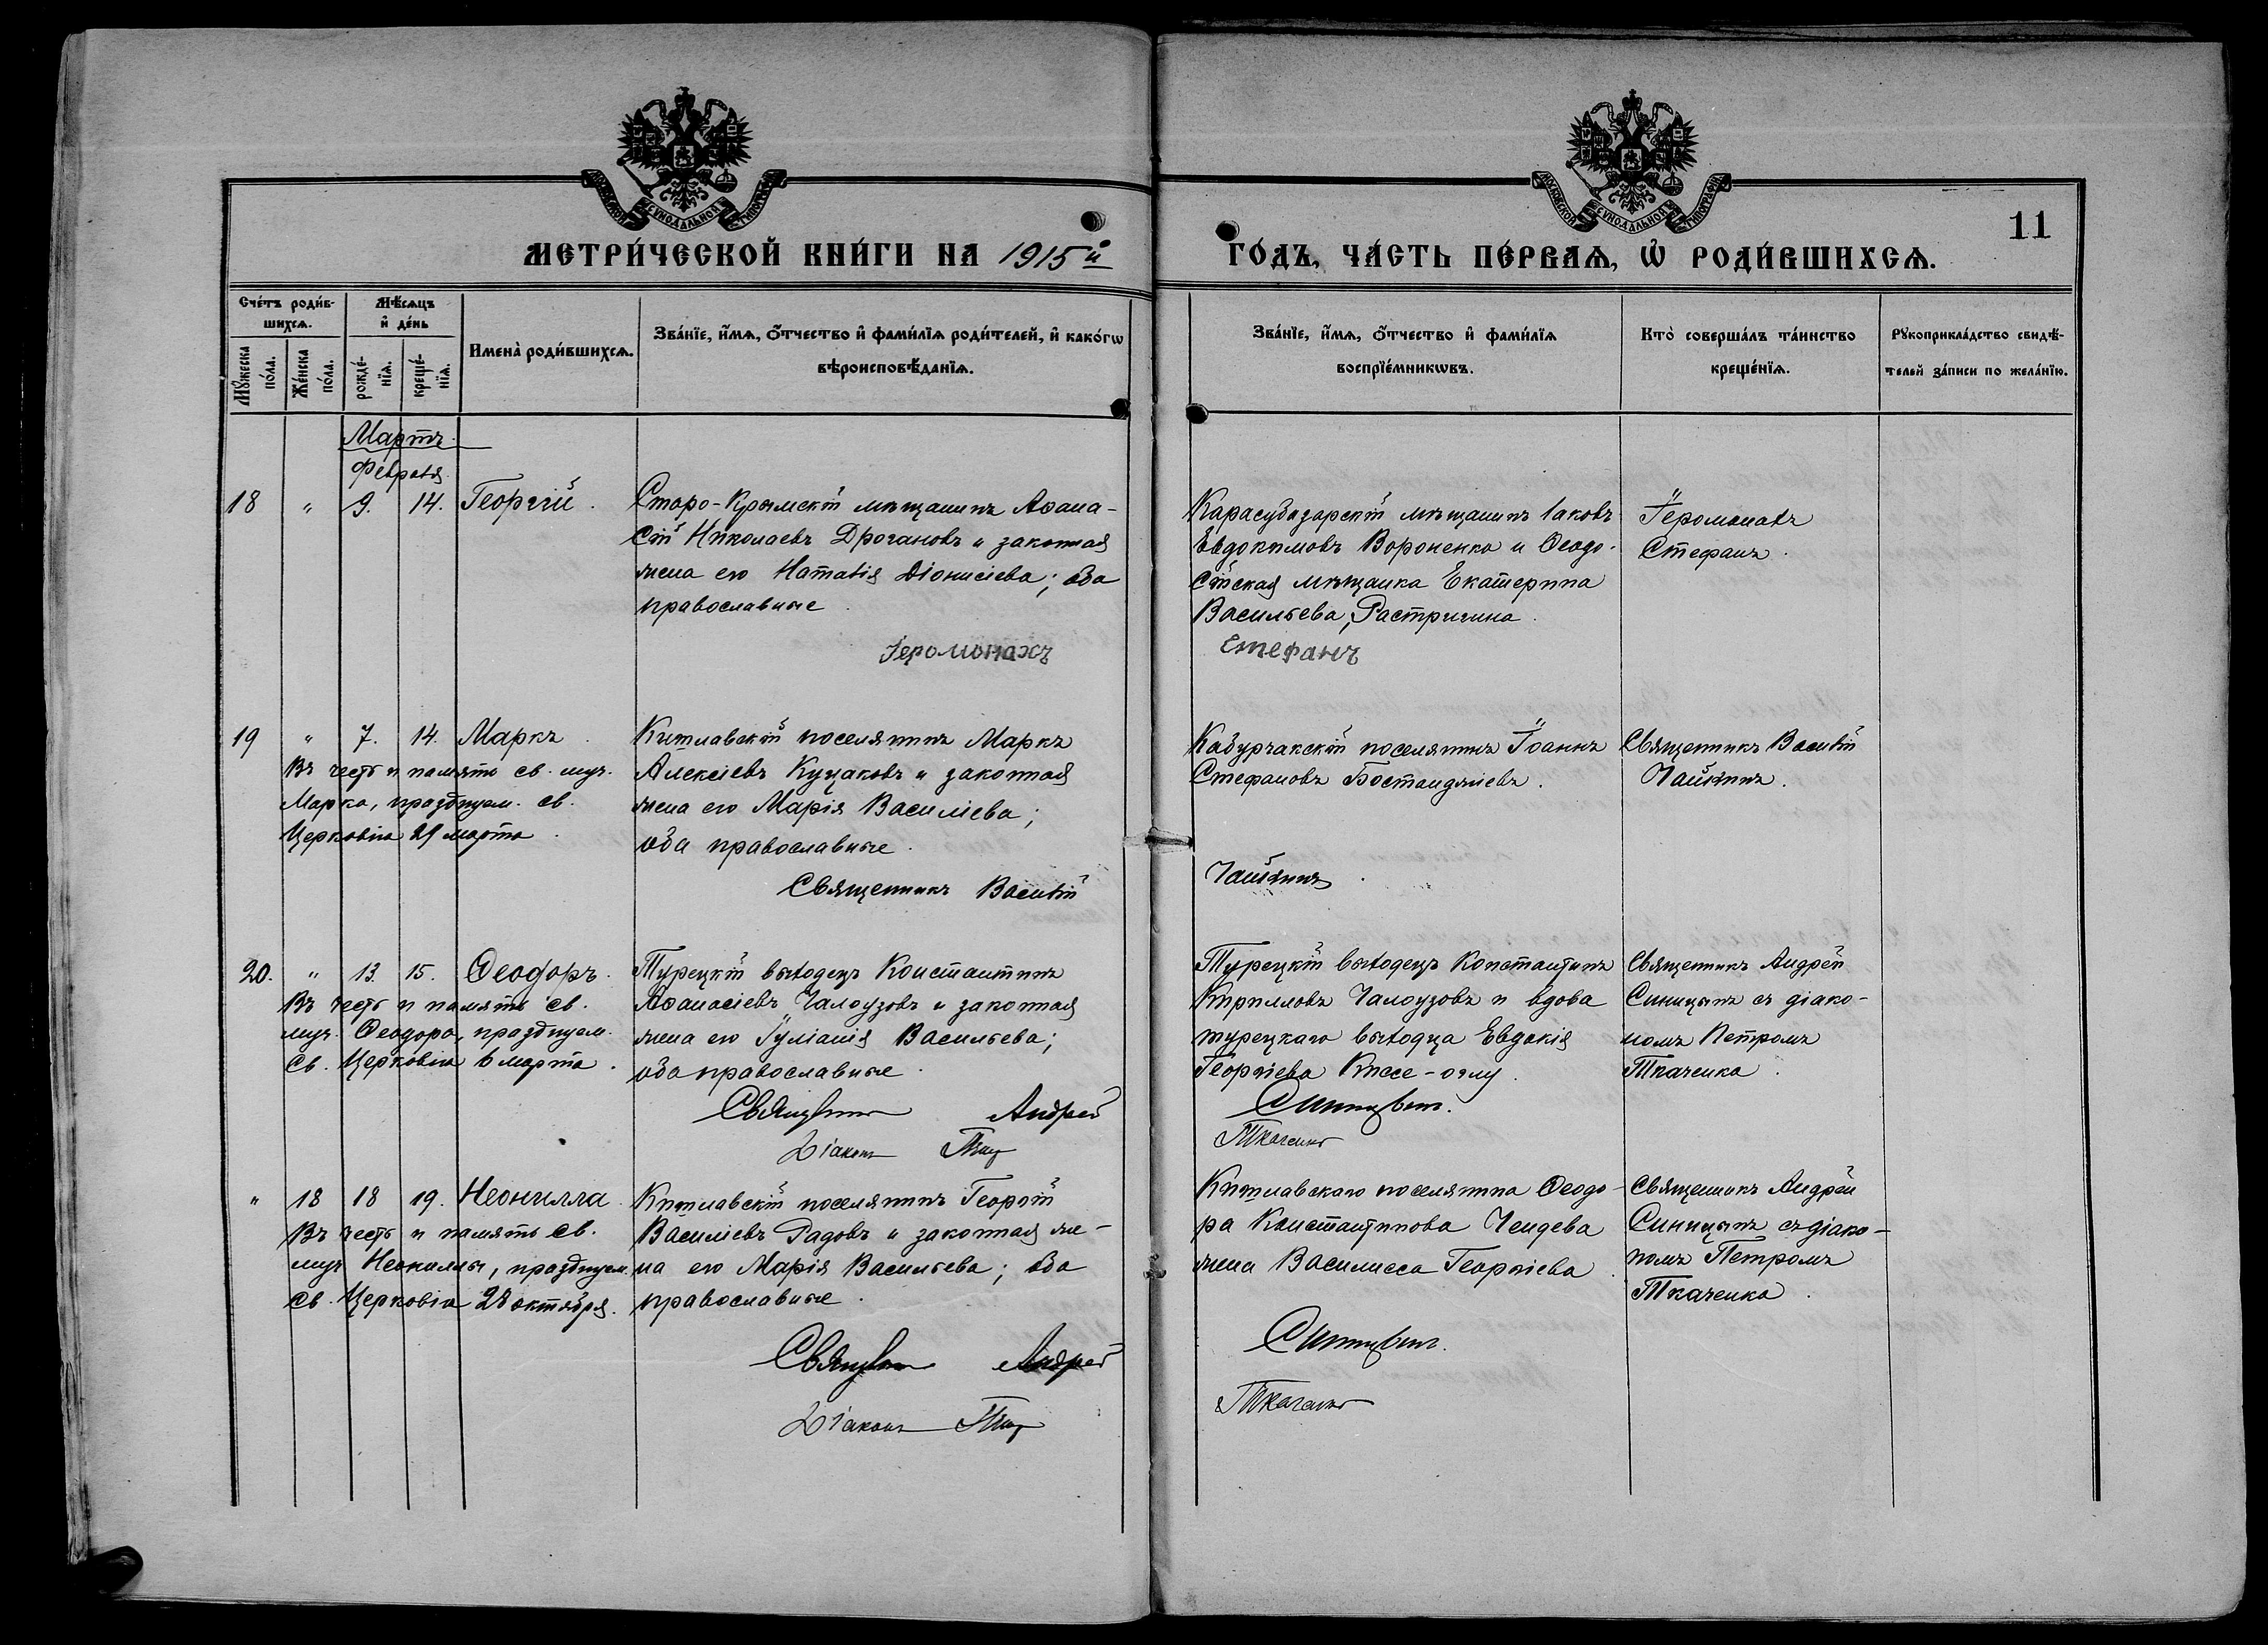 МОСКОВСКОЙ СѴНОДАЛЬНОЙ ТИПОГРАФІИ
МОСКОВСКОЙ СѴНОДАЛЬНОЙ ТИПОГРАФІИ
11
МЕТРИ́ЧЕСКОЙ КНИ́ГИ НА 1915й
ГО́ДЪ, ЧА́СТЬ ПЕ́РВАѦ, Ѡ҆ РОДИ́ВШИХСѦ.
Сче́тъ роди́в-
шихсѧ.
Мꙋ́жеска
по́ла.
Же́нска
по́ла.
Мѣ́сѧцъ
и҆ де́нь
рожде́-
нїѧ.
креще́-
нїѧ.
Имена̀ роди́вшихсѧ.
Зва́нїе, и҆́мѧ, ѻ҆́тчество и҆ фами́лїѧ роди́телей, и҆ како́гѡ
вѣроисповѣ́данїѧ.
Зва́нїе, и҆́мѧ, ѻ҆́тчество и҆ фами́лїѧ
воспрїе́мникѡвъ.
Кто̀ соверша́лъ та́инство
креще́нїѧ.
Рꙋкоприкла́дство свидѣ́-
телей за́писи по жела́нїю.
Мартъ.
Февраля.
18 " 9. 14. Георгій.
Старо-Крымскій мѣщанинъ Аѳана-
сій Николаевъ Дрогановъ и законная
жена его Наталія Діонисіева; оба
православные.
Іеромонахъ
Карасубазарскій мѣщанинъ Іаковъ
Евдокимовъ Вороненко и Ѳеодо-
сійская мѣщанка Екатерина
Васильева Растригина.
Стефанъ
Іеромонахъ
Стефанъ.
19 " 7. 14. Маркъ.
Въ честь и память св. муч.
Марка, празднуем. св.
Церковію 29 марта.
Китлавскій поселянинъ Маркъ
Алексіевъ Куцаковъ и законная
жена его Марія Василіева;
оба православные.
Священникъ Василій
Кабурчакскій поселянинъ Іоаннъ
Стефановъ Бостанджіевъ.
Чайкинъ.
Священникъ Василій
Чайкинъ.
20. " 13. 15. Ѳеодоръ.
Въ честь и память св.
муч. Ѳеодора, празднуем.
св. Церковію 6 марта.
Турецкій выходецъ Константинъ
Аѳанасіевъ Чалоузовъ и законная
жена его Іуліанія Васильева;
оба православные.
Священникъ Андрей
Діаконъ Петр
Турецкій выходецъ Константинъ
Кирилловъ Чалоузовъ и вдова
турецкаго выходца Евдокія
Георгіева Киссе-оглу.
Синицынъ.
Ткаченко
Священникъ Андрей
Синицынъ съ діако-
номъ Петромъ
Ткаченко.
" 18 18 19. Неонилла.
Въ честь и память св.
муч. Неониллы, празднуем.
св. Церковію 28 октября.
Китлавскій поселянинъ Георгій
Василіевъ Радовъ и законная же-
на его Марія Васильева; оба
православные.
Священникъ Андрей
Діаконъ Петр
Китлавскаго поселянина Ѳеодо-
ра Константинова Чендева
жена Василисса Георгіева.
Синицынъ.
Ткаченко
Священникъ Андрей
Синицынъ съ діако-
номъ Петромъ
Ткаченко.